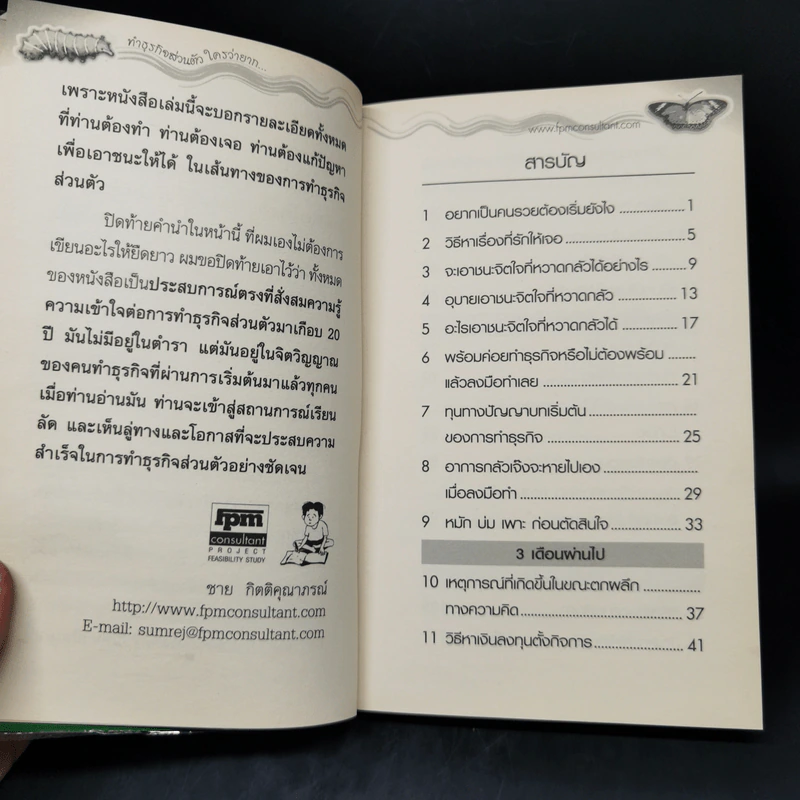 ทำธุรกิจส่วนตัว ใครว่ายาก...
เพราะหนังสือเล่มนี้จะบอกรายละเอียดทั้งหมด
ที่ท่านต้องทำ ท่านต้องเจอ ท่านต้องแก้ปัญหา
เพื่อเอาชนะให้ได้ ในเส้นทางของการทำธุรกิจ
ส่วนตัว
ปิดท้ายคำนำในหน้านี้ ที่ผมเองไม่ต้องการ
เขียนอะไรให้ยืดยาว ผมขอปิดท้ายเอาไว้ว่า ทั้งหมด
ของหนังสือเป็นประสบการณ์ตรงที่สั่งสมความรู้
ความเข้าใจต่อการทำธุรกิจส่วนตัวมาเกือบ 20
ปี มันไม่มีอยู่ในตำรา แต่มันอยู่ในจิตวิญญาณ
ของคนทำธุรกิจที่ผ่านการเริ่มต้นมาแล้วทุกคน
เมื่อท่านอ่านมัน ท่านจะเข้าสู่สถานการณ์เรียน
ลัด และเห็นลู่ทางและโอกาสที่จะประสบความ
สำเร็จในการทำธุรกิจส่วนตัวอย่างชัดเจน
fpm
consultant
PROJECT
FEASIBILITY STUDY
ชาย กิตติคุณาภรณ์
http://www.fpmconsultant.com
E-mail: sumrej@fpmconsultant.com
www.fpmconsultant.com
สารบัญ
1 อยากเป็นคนรวยต้องเริ่มยังไง ................ 1
2 วิธีหาเรื่องที่รักให้เจอ ............................ 5
3 จะเอาชนะจิตใจที่หวาดกลัวได้อย่างไร ........ 9
4 อุบายเอาชนะจิตใจที่หวาดกลัว ............... 13
5 อะไรเอาชนะจิตใจที่หวาดกลัวได้ .............. 17
6 พร้อมค่อยทำธุรกิจหรือไม่ต้องพร้อม ........
แล้วลงมือทำเลย .................................. 21
7 ทุนทางปัญญาบทเริ่มต้น ........................
ของการทำธุรกิจ .................................. 25
8 อาการกลัวเจ๊งจะหายไปเอง .....................
เมื่อลงมือทำ ....................................... 29
9 หมัก บ่ม เพาะ ก่อนตัดสินใจ ................. 33
3 เดือนผ่านไป
10 เหตุการณ์ที่เกิดขึ้นในขณะตกผลึก ............
ทางความคิด ....................................... 37
11 วิธีหาเงินลงทุนตั้งกิจการ ....................... 41